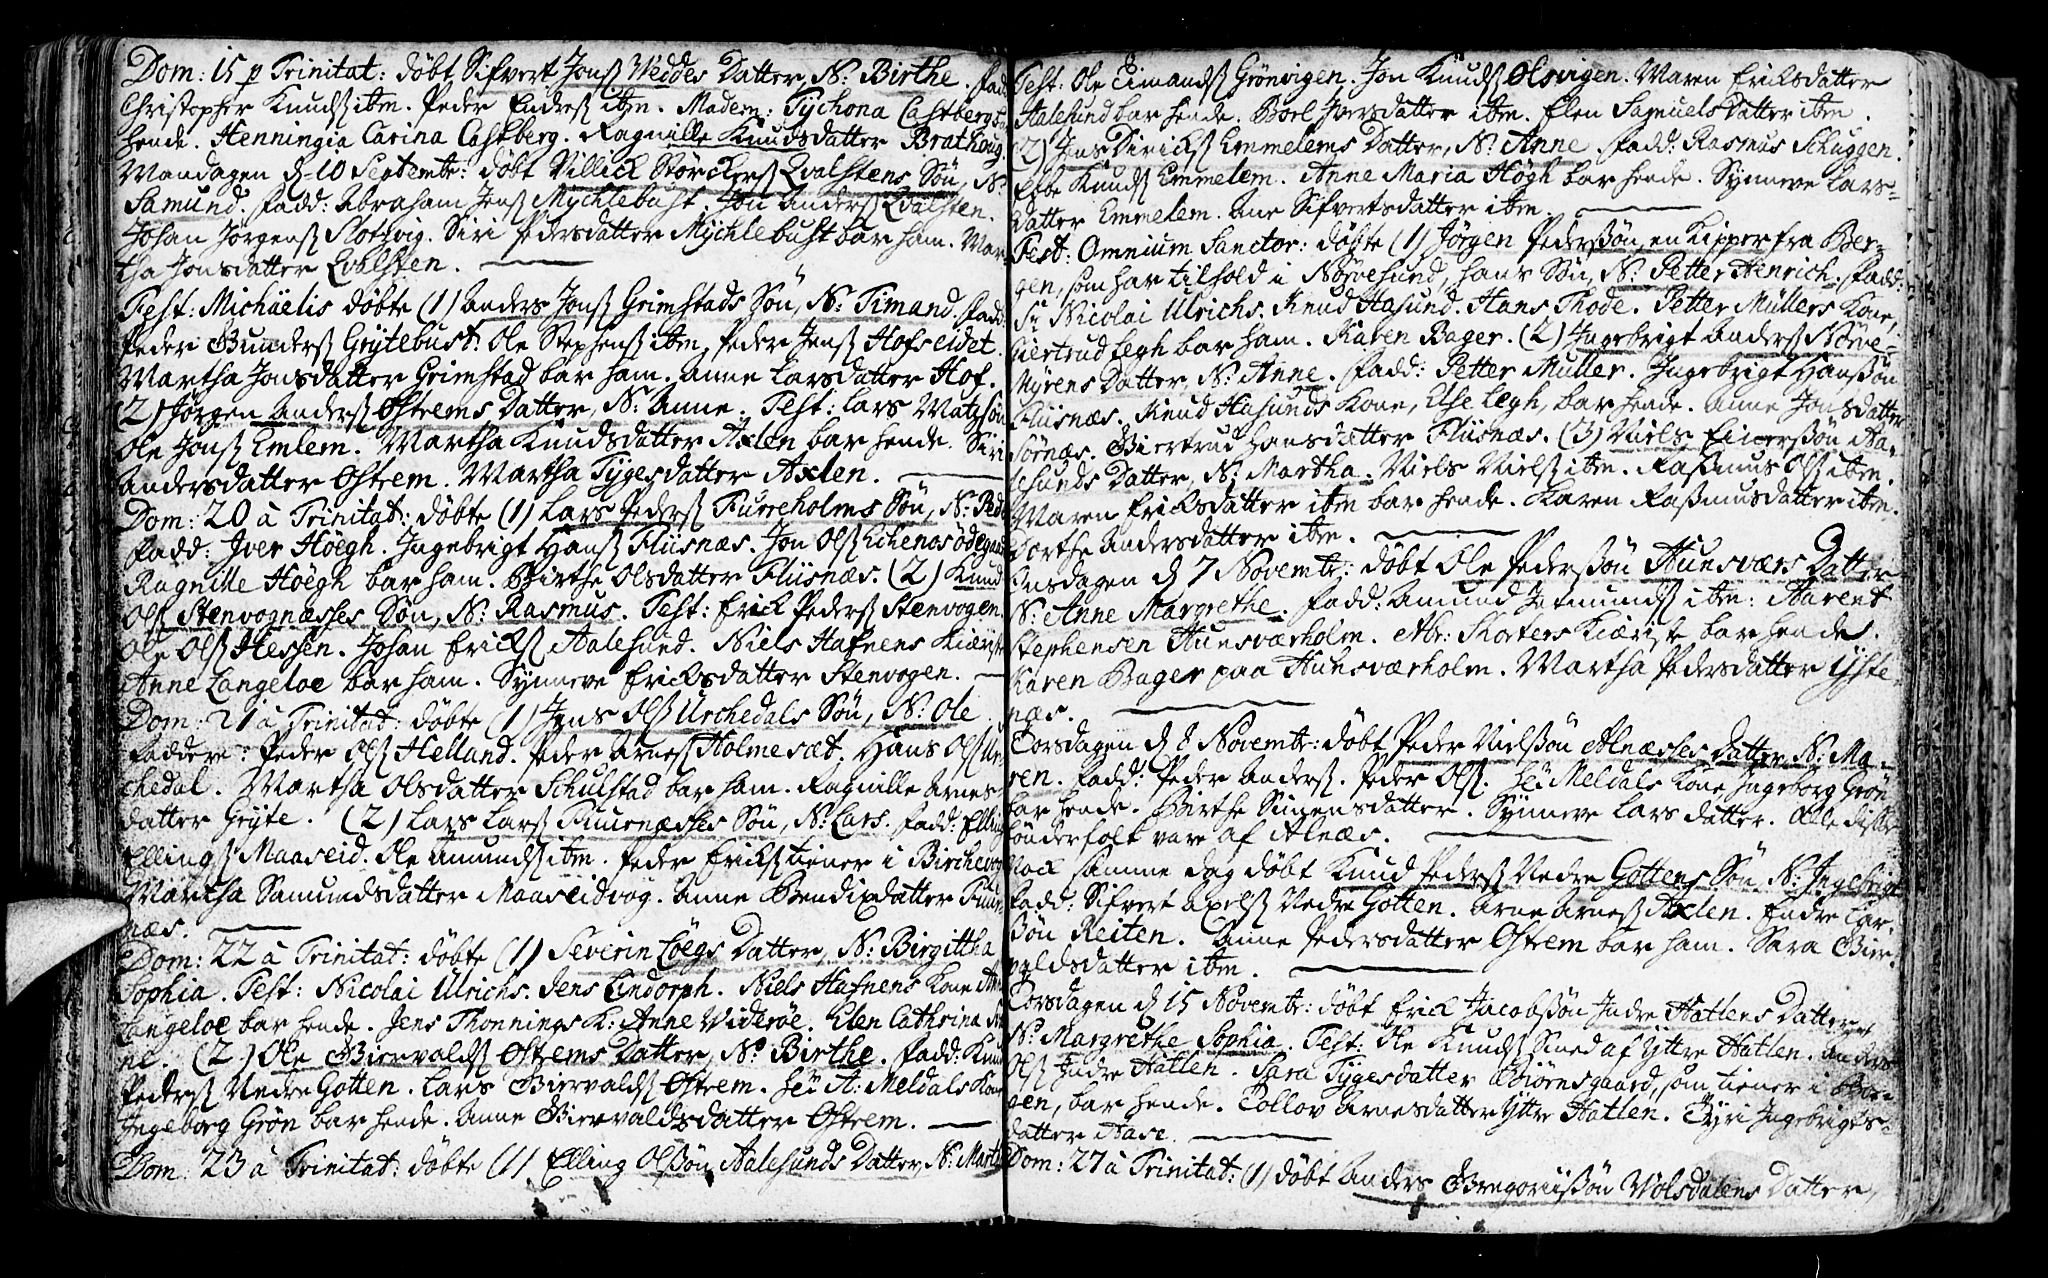 Dom: 15 p Trinitat: döbt Sifvert Jonſ Weddes Datter, N: Birthe. Fad:
Christopher Knudſ ibm. Peder Enderſ ibm. Madem: Tychona Castbergs
hende. Henningia Carina Castberg. Ragnille Knudsdatter Brathoug.
Mandagen d. 10 Septembr: döbt Villich Störckerſ Qvalstens Sön, N:
Samund. Fadd: Abraham Jenſ Mychlebust. Jon Anderſ Qvalsten.
Johan Jörgenſ Slotsvig. Siri Pedersdatter Mychlebust bar ham. Mar-
tha Jonsdatter Qvalsten.
Fest: Michäelis döbte (1) Anders Jonſ Grimstads Sön, N: Timand. Fadd:
Peder Gunderſ Grytebust. Ole Stephenſ ibm. Peder Jenſ Hofseidet.
Martha Jonsdatter Grimstad bar ham. Anne Larsdatter Hof.
(2) Jörgen Anderſ Östrems Datter, N: Anne. Test: Lars Matzsön
Ole Jonſ Emlem. Martha Knudsdatter Axlen bar hende. Siri
Andersdatter Östrem. Martha Tygesdatter Axlen.
Dom: 20 à Trinitat: döbte (1) Lars Pederſ Furreholms Sön, N: Peder
Fadd: Jver Höegh. Jngebrigt Hanſ Fliisnæs. Jon Olſ Echenosödegaar
Ragnille Höegh bar ham. Birthe Olsdatter Fliisnæs. (2) Knud
Olſ Stenvognæsses Sön, N: Rasmus. Test: Erick Pederſ Stenvogen.
Ole Olſ Hessen. Johan Erickſ Aalesund. Niels Hafnens Kiæriste
Anne Langeloe bar ham. Synneve Ericksdatter Stenvogen.
Dom: 21 à Trinitat: döbte (1) Jens Olſ Urchedals Sön, N: Ole.
Faddere: Peder Olſ Helland. Peder Arneſ Holmesæt. Hans Olſ Ur-
chedal. Martha Olsdatter Schulstad bar ham. Ragnille Arnes-
datter Gryte. (2) Lars Larſ Tuurnæsses Sön, N: Lars. Fadd: Elling
Ellingſ Maaseid. Ole Amundſ ibm. Peder Erickſ tiener i Birchevog
Martha Samundsdatter Maaseidvog. Anne Bendixdatter Tuur-
næs.
Dom: 22 à Trinitat: döbte (1) Severin Löegs Datter, N: Birgittha
Sophia. Test: Nicolai Ulrichs. Jens Lindorph. Niels Hafnens Kone An
Langeloe bar hende. Jens Thonnings K: Anne Videröe. Elen Cathrina
ne. (2) Ole Giervaldſ Östrems Datter, N: Birthe. Fadd: Knud
Pederſ Nedre Gotten. Lars Giervaldſ Östrem. Hr: A: Meldals Kone
Jngeborg Grön bar hende. Anne Giervaldsdatter Östrem.
Dom: 23 à Trinitat: döbte (1) Elling Olſsön Aalesunds Datter, N: Martha
Test: Ole Timandſ Grönvigen. Jon Knudſ Olsvigen. Maren Ericksdatter
Aalesund bar hende. Boel Jversdatter ibm. Elen Samuelsdatter ibm.
(2) Jens Dirickſ Emmelems Datter, N: Anne. Fadd: Rasmus Schuggen.
Efbe Knudſ Emmelem. Anne Maria Högh bar hende. Synneve Lars-
datter Emmelem. Ane Sifvertsdatter ibm.
Fest: Omnium Sanctor: döbte (1) Jörgen Pederſsön, en Kipper fra Ber-
gen, som har tilhold i Nörvesund, hans Sön, N: Petter Henrich. Fadd:
Sr Nicolai Ulrichs. Knud Hasund. Hans Thode. Petter Müllers Kone,
Giertrud Legh bar ham. Karen Bager. (2) Jngebrigt Anderſ Nörve-
Myrens Datter, N: Anne. Fadd: Petter Müller. Jngebrigt Hansſön
Fliisnæs. Knud Hasunds Kone, Else Legh, bar hende. Anne Jonsdatter
Sörnæs. Giertrud Hansdatter Fliisnæs. (3) Niels Einersſön Aa-
lesunds Datter, N: Martha. Niels Nielſ ibm. Rasmus Olſ ibm.
Maren Ericksdatter ibm bar hende. Karen Rasmusdatter ibm.
Dorthe Andersdatter ibm.
Onsdagen d 7 Novembr: döbt Ole Pedersſön Hunsværs Datter
N: Anne Margrethe. Fadd: Amund Jetmundſ ibm: Aarent
Stephensen Hunsværholm. Abr: Skorters Kiæriste bar hende.
Karen Bager paa Hunsværholm. Martha Pedersdatter Yste-
næs.
Torsdagen d 8 Novembr: döbt Peder Nielsſön Alnæsses datter N: Ma-
ren. Fadd: Peder Anderſ. Peder Olſ. Hr: Meldals Kone Jngeborg Grön
bar hende. Birthe Simensdatter. Synneve Larsdatter. Alle disse
bönderfolk vare af Alnæs.
Nock samme dag döbt Knud Pederſ Nedre Gottens Sön N: Jngebrigt
Fadd: Sifvert Axelſ Nedre Gotten. Arne Arneſ Axlen. Endre Lar-
sſön Reiten. Anne Pedersdatter Östrem bar ham. Sara Gier-
valdsdatter ibm.
Torsdagen d 15 Novembr: döbt Erick Jacobsſön Jndre Hatlens Datter
N: Margrethe Sophia. Test: Ole Knudſ Smed af Yttre Hatlen. Anders
Olſ Jndre Hatlen. Sara Tygesdatter Biörnsgaard, som tiener i Bor-
gen, bar hende. Tollov Arnesdatter Yttre Hatlen. Tyri Jngebrigts-
datter Aase.
Dom: 27 à Trinitat: (1) döbt Anders Gregoriisſön Volsdalens Datter,